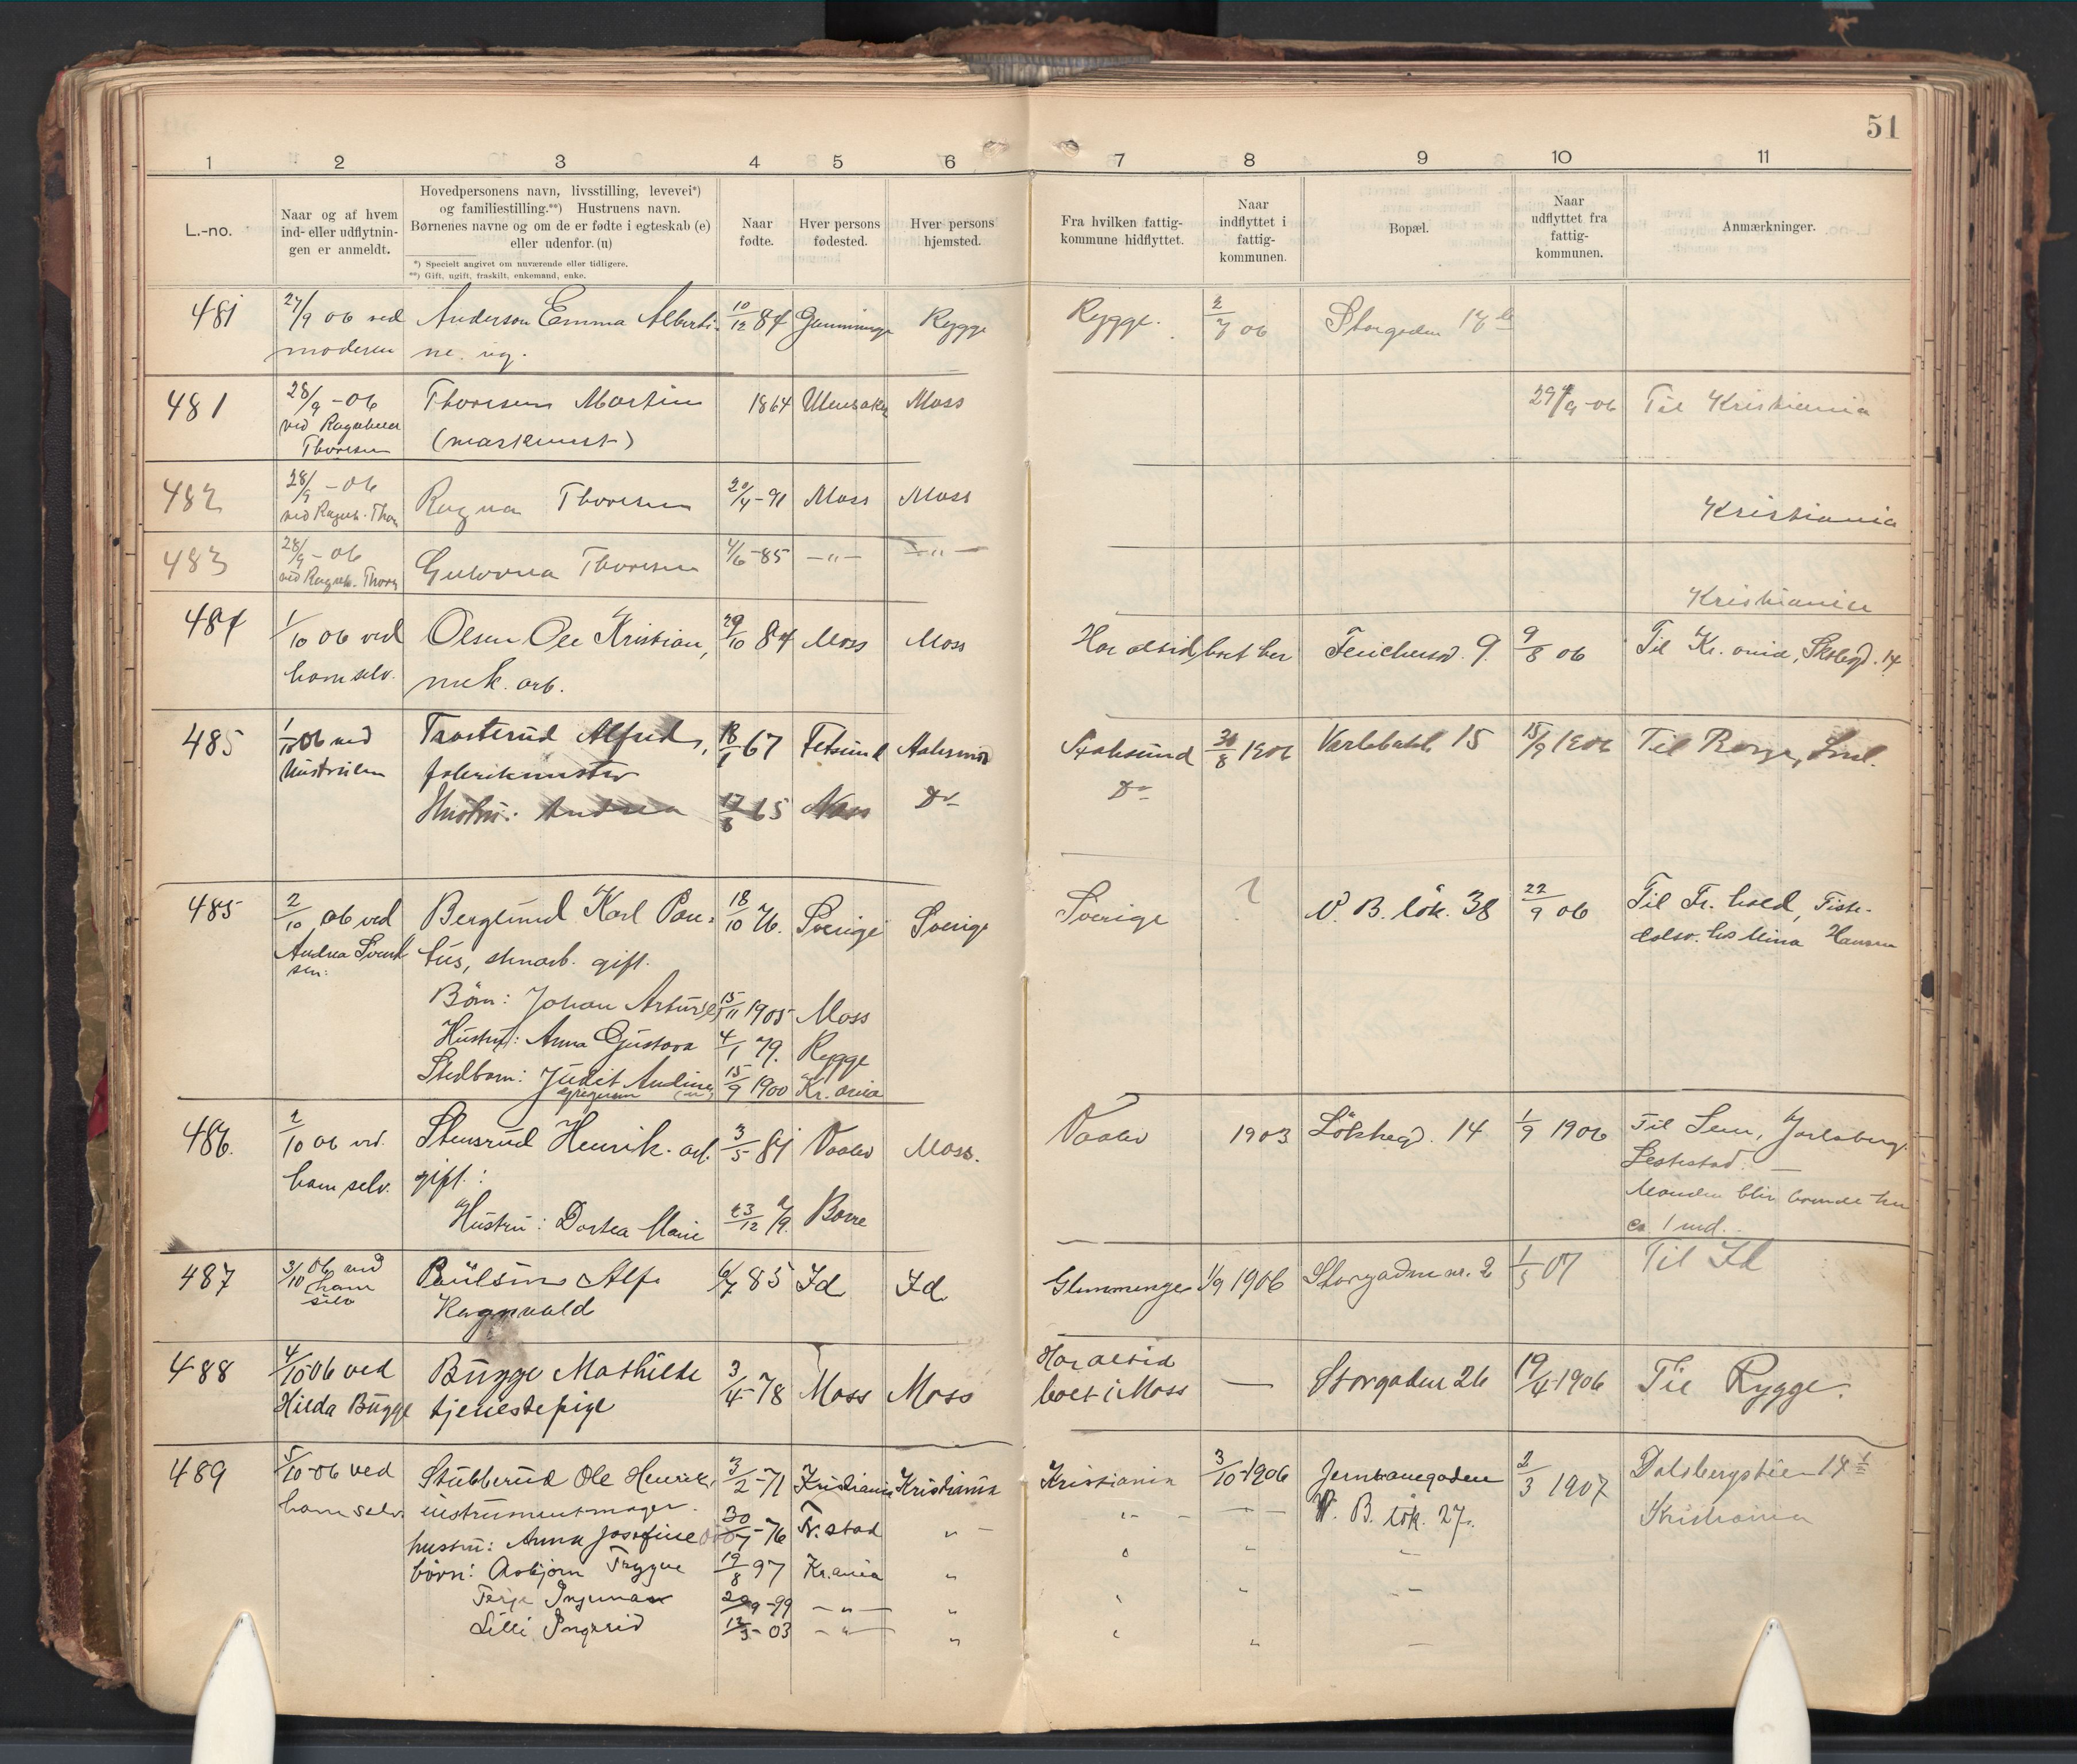 51
1 2 3 4 5 6 7 8 9 10 11
L.-no.
Naar og af hvem
ind- eller udflytnin-
gen er anmeldt.
Hovedpersonens navn, livsstilling, levevei*)
og familiestilling.**) Hustruens navn.
Børnenes navne og om de er fødte i egteskab (e)
eller udenfor. (u)
*) Specielt angivet om nuværende eller tidligere.
**) Gift, ugift, fraskilt, enkemand, enke.
Naar
fødte.
Hver persons
fødested.
Hver persons
hjemsted.
Fra hvilken fattig-
kommune hidflyttet.
Naar
indflyttet i
fattig-
kommunen.
Bopæl.
Naar
udflyttet fra
fattig-
kommunen.
Anmærkninger.
481 27/9 06 ved Anderson Emma Alberti- 10/12 84 Rygge Rygge. 2/7 06 Storgaden
moderen ne. ug.
481 28/9 -06 Thoresen Martin 1864 Ullensaker Moss 29/9 -06 Til Kristiania
ved Ragnhild
Thoresen (maskinist)
482 28/9 -06 Ragna Thoresen 20/4-91 Moss Moss Kristiania
ved Ragnh. Thor
483 28/9 -06 Thoresen 4/6-85 —"— —"—
ved Ragnh. Thore Kristiania
484 1/10 06 ved Olsen Ole Kristian, 29/10 84 Moss Moss Har altid boet her 9. 9/8 06 Til Kr.ania, 14
ham selv. mek. arb.
485 1/10 06 ved Trosterud Alfred, 18/1 67 Fetsund 8 1906 15 15/9 1906 Til Borge, Sml.
Hustruen fabrikmester
Hustru: Andrea 17/8 65 Moss Do Do
485 2/10 06 ved Berglund Karl Pon- 18/10 76. Sverige Sverige Sverige ? V. B. løk. 38 22/9 06 Til Fr.hald, Tiste-
Andrea Svend- tus, stenarb. gift. dalsv. hos Mina Hansen
sen.
Børn: Johan Artur (e) 15/11 1905 Moss
Hustru: Anna Gustava 4/1 79. Rygge
Stedbarn: Judit Andine 15/9 1900 Kr.ania
(u)
486. 2/10 06 ved Stensrud Henrik. arb. 3/5 81 Vaaler Moss. Vaaler 1903 Løkkegd. 14 1/9 1906 Til Sem, Jarlsberg.
ham selv. gift.:
Manden blir boende her
Hustru: Dortea Marie 23/12 79. Borre ca. 1 md.
487 3/10 06 ved Paulsen Alf 6/7 85 Id Id Glemminge 1/9 1906 Storgaden nr. 2 1/5 07 Til Id
ham
selv Ragnvald
488 4/10 06 ved Bugge Mathilde 3/4-78 Moss Moss Har altid — Storgaden 26 19/4-1906 Til Rygge.
Hilda Bugge tjenestepige boet i Moss
489 5/10-06 ved Stubberud Ole Henrik, 3/2-71 Kristiania Kristiania Kristiania 3/10-1906 Jernbanegaden 2/3 1907 Dalsbergstien 14
ham selv. instrumentmager. V. B. løk. 27. Kristiania
hustru: Anna Josefine 30/7-76 Fr.stad "
børn: Asbjørn Trygve 19/8 97 Kr.ania "
Terje Ingemar 9-99 —"— "
Lilli Ingrid 13/3-03 —"— "